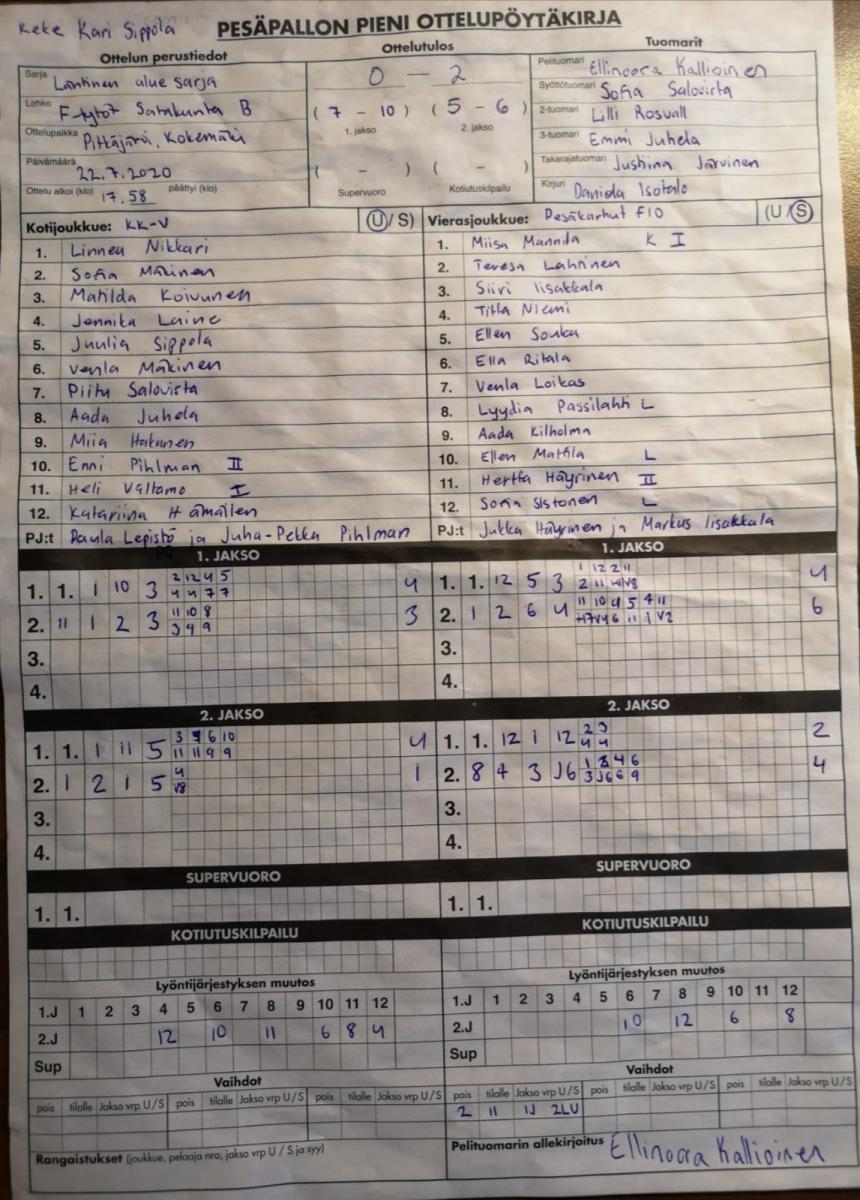 Keke Kari Sippola
PESÄPALLON PIENI OTTELUPÖYTÄKIRJA
Ottelun perustiedot
Sarja Läntinen alue sarja
Lohko F-tytöt Satakunta B
Ottelupaikka Pitkäjärvi, Kokemäki
Päivämäärä 22.7.2020
Ottelu alkoi (klo) 17.58 päättyi (klo)
Ottelutulos
0 - 2
( 7 - 10 ) ( 5 - 6 )
1. jakso 2. jakso
( - ) ( - )
Supervuoro Kotiutuskilpailu
Tuomarit
Pelituomari Ellinoora Kallioinen
Syöttötuomari Sofia Salovirta
2-tuomari Lilli Rosvall
3-tuomari Emmi Juhela
Takarajatuomari Justiina Järvinen
Kirjuri Daniela Isotalo
Kotijoukkue: KK-V (U/ S)
1. Linnea Nikkari
2. Sofia Mäkinen
3. Matilda Koivunen
4. Jennika Laine
5. Juulia Sippola
6. Venla Mäkinen
7. Piitu Salovirta
8. Aada Juhela
9. Miia Hakanen
10. Enni Pihlman II
11. Heli Valtamo I
12. Katariina Hämäläinen
PJ:t Paula Lepistö ja Juha-Pekka Pihlman
Vierasjoukkue: Pesäkarhut F10 (U / S)
1. Miisa Mannila K I
2. Teresa Lahtinen
3. Siiri Iisakkala
4. Titta Niemi
5. Ellen Souka
6. Ella Ritala
7. Venla Loikas
8. Lyydia Passilahti L
9. Aada Kilholma
10. Ellen Mattila L
11. Hertta Häyrinen II
12. Sofia Sistonen L
PJ:t Jukka Häyrinen ja Markus Iisakkala
1. JAKSO
1. 1. 1 10 3 2 12 4 5 4
4 4 7 7
2. 11 1 2 3 11 10 8 3
3 4 9
3.
4.
1. JAKSO
1. 1. 12 5 3 1 12 2 11 4
2 11
2. 1 2 6 4 11 10 4 5 4 11 6
6 11 1 V2
3.
4.
2. JAKSO
1. 1. 1 11 5 3 6 10 4
11 11 9 9
2. 1 2 1 5 4 1
V8
3.
4.
2. JAKSO
1. 1. 12 1 12 2 3 2
4 4
2. 8 4 3 J6 1 4 6 4
3 J6 6 9
3.
4.
SUPERVUORO
1. 1.
SUPERVUORO
1. 1.
KOTIUTUSKILPAILU
KOTIUTUSKILPAILU
Lyöntijärjestyksen muutos
1.J 1 2 3 4 5 6 7 8 9 10 11 12
2.J 12 10 11 6 8 4
Sup
Lyöntijärjestyksen muutos
1.J 1 2 3 4 5 6 7 8 9 10 11 12
2.J 10 12 6 8
Sup
Vaihdot
pois tilalle Jakso vrp U/S pois tilalle Jakso vrp U/S pois tilalle Jakso vrp U/S
Rangaistukset (joukkue, pelaaja nro, jakso vrp U / S ja syy)
Vaihdot
pois tilalle Jakso vrp U/S pois tilalle Jakso vrp U/S pois tilalle Jakso vrp U/S
2 11 1J 2LU
Pelituomarin allekirjoitus Ellinoora Kallioinen